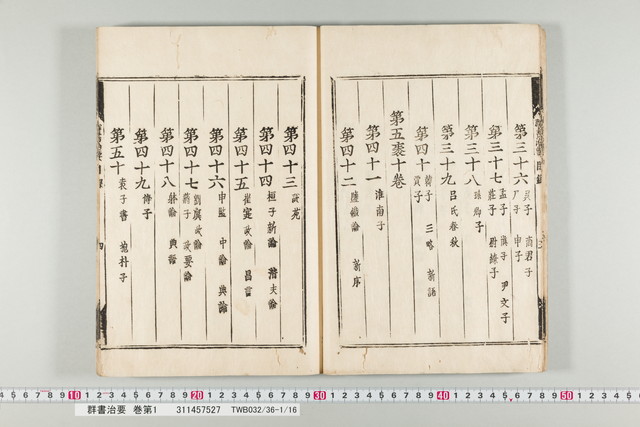 第三十六 吴子 商君子
尸子 申子
第三十七 孟子 慎子 尹文子
莊子 尉繚子
第三十八 孫卿子
第三十九 呂氏春秋
第四十 韓子 三略 新語
賈子
第五袠十卷
第四十一 淮南子
第四十二 鹽鐵論 新序
第四十三 說苑
第四十四 桓子新論 潛夫論
第四十五 崔寔政論 昌言
第四十六 申鑒 中論 典論
第四十七 劉廙政論
蔣子 政要論
第四十八 體論 典語
第四十九 傅子
第五十 袁子書 抱朴子
四
10 20 30 40 50
群書治要 巻第1 311457527 TWB032/36-1/16